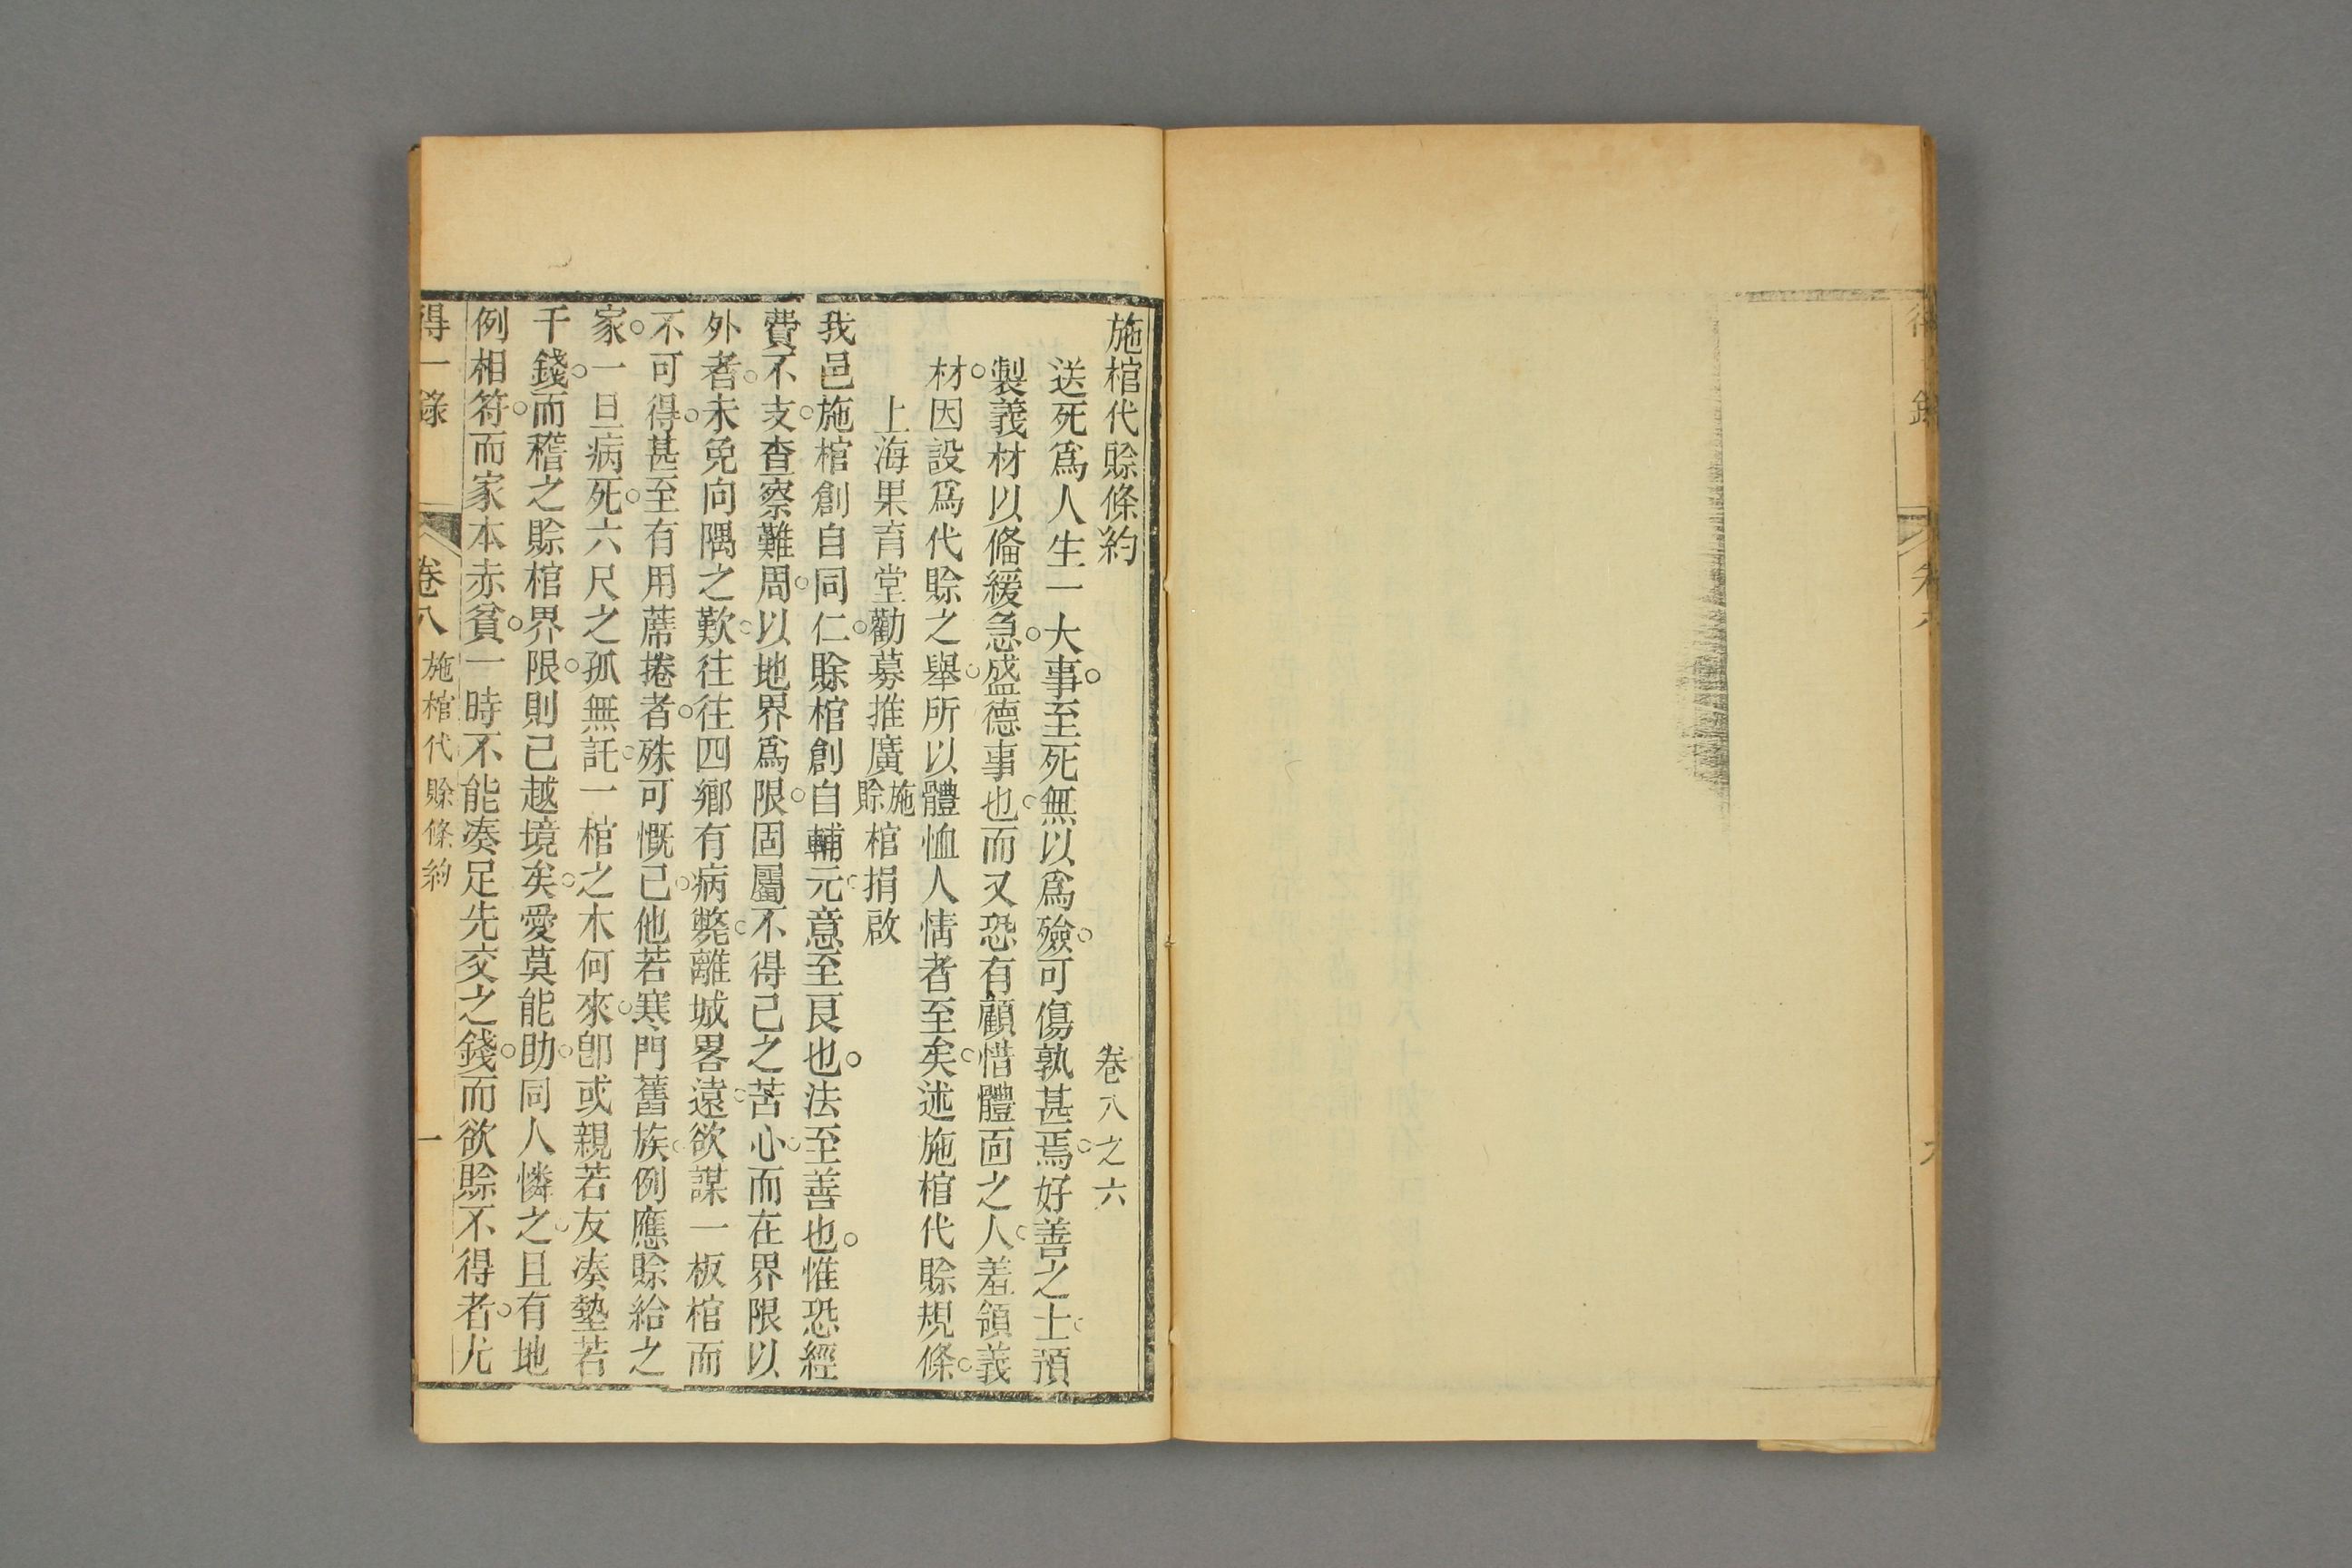 施棺代賒條約 卷八之六
送死爲人生一大事。至死無以爲殮。可傷孰甚焉。好善之士。預
製義材以備緩急。盛德事也。而又恐有顧惜體面之人。羞領義
材。因設爲代賒之舉。所以體恤人情者至矣。述施棺代賒規條。
上海果育堂勸募推廣施賒棺捐啟
我邑施棺創自同仁。賒棺創自輔元。意至良也。法至善也。惟恐經
費不支。查察難周。以地界爲限。固屬不得已之苦心。而在界限以
外者。未免向隅之歎。往往四鄉有病斃。離城畧遠。欲謀一板棺而
不可得。甚至有用蓆捲者。殊可慨已。他若寒門舊族。例應賒給之
家。一旦病死。六尺之孤無託。一棺之木何來。卽或親若友湊墊若
千錢。而稽之賒棺界限。則已越境矣。愛莫能助。同人憐之。且有地
例相符。而家本赤貧。一時不能湊足先交之錢。而欲賒不得者。尤
得一錄 卷八 施棺代賒條約 一